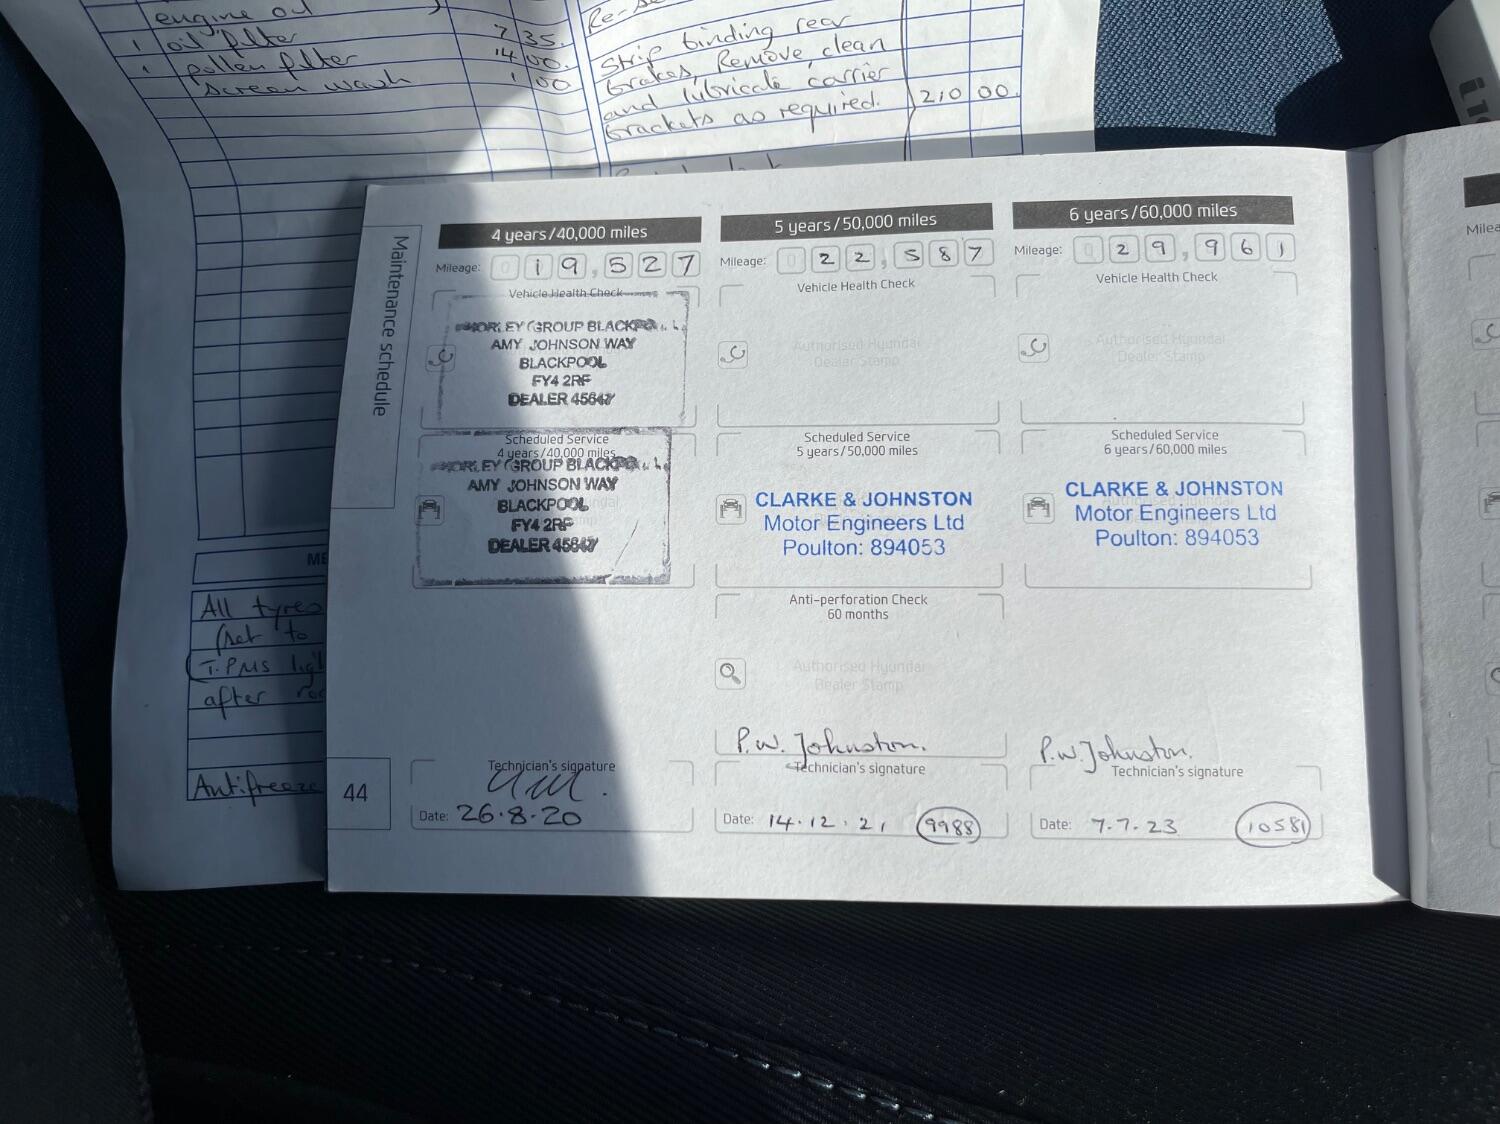 engine oil
1 oil filter 7 35.
1 pollen filter 14 00.
screen wash 1 00
Strip binding rear
brakes, Remove, clean
and lubricate carrier
brackets as required. 210 00.
All tyres
(set to
T.P.M.S
after
Antifreeze
Maintenance schedule
44
4 years/40,000 miles
Mileage: 0 1 9 , 5 2 7
Vehicle Health Check
GROUP
AMY JOHNSON WAY
BLACKPOOL
FY4 2RF
DEALER 45647
Scheduled Service
4 years/40,000 miles
GROUP
AMY JOHNSON WAY
BLACKPOOL
FY4 2RF
DEALER 45647
Technician's signature
Date: 26.8.20
5 years/50,000 miles
Mileage: 0 2 2 , 5 8 7
Vehicle Health Check
Authorised Hyundai
Dealer Stamp
Scheduled Service
5 years/50,000 miles
CLARKE & JOHNSTON
Motor Engineers Ltd
Poulton: 894053
Anti-perforation Check
60 months
Authorised Hyundai
Dealer Stamp
P.W. Johnston.
Technician's signature
Date: 14.12.21 9988
6 years/60,000 miles
Mileage: 0 2 9 , 9 6 1
Vehicle Health Check
Authorised Hyundai
Dealer Stamp
Scheduled Service
6 years/60,000 miles
CLARKE & JOHNSTON
Motor Engineers Ltd
Poulton: 894053
P.W. Johnston.
Technician's signature
Date: 7.7.23 10581